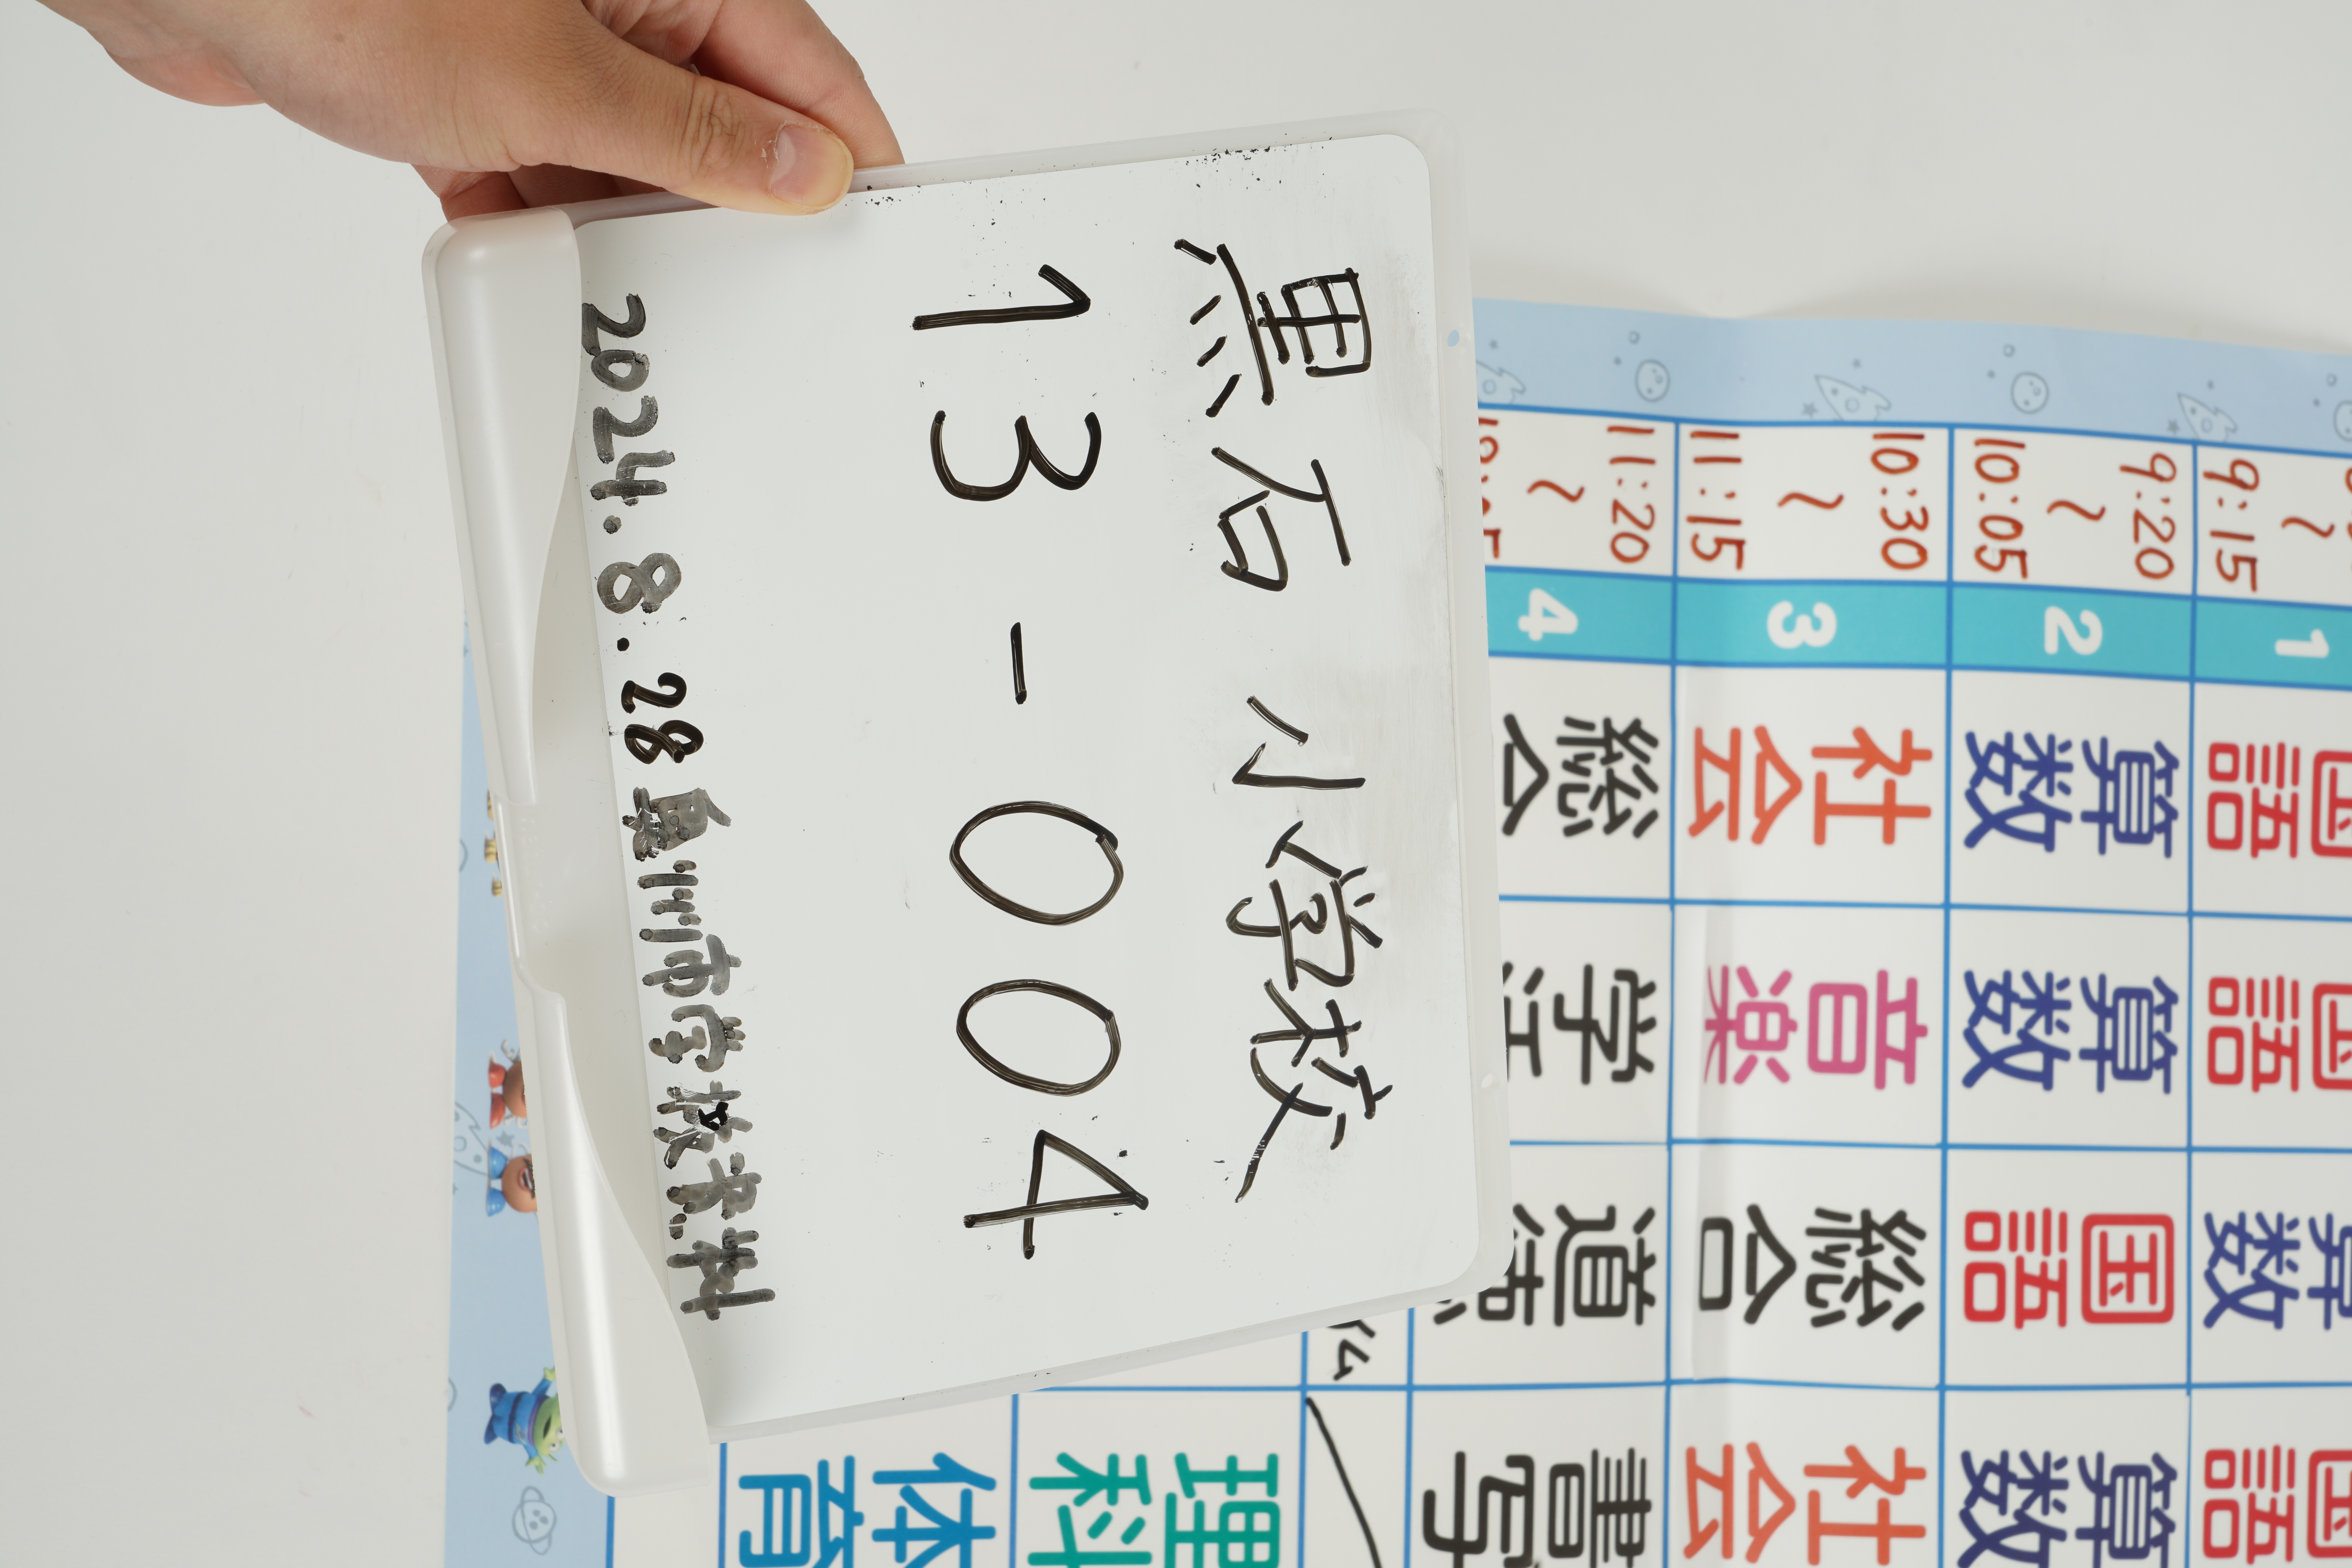 黒石小学校
13-004
2024.8.28
市学校
〜
9:15
1 国語 国語 算数 国語
9:20
〜
10:05
2 算数 算数 国語 算数
10:30
〜
11:15
3 社会 音楽 総合 社会
11:20
〜
4 総合 学活 道徳 書写
理科
体育